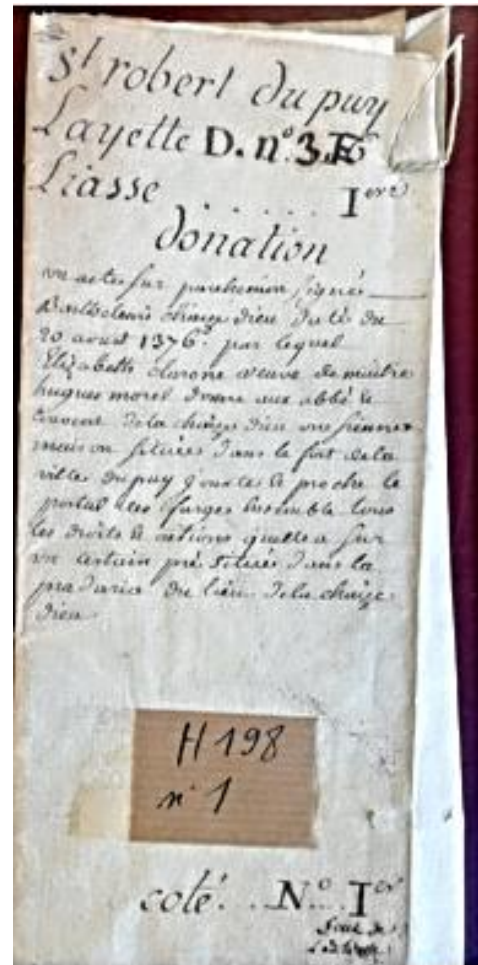 St robert du puy
Layette D. n.º 3.E
Liasse . . . . . . Iere
donation
un acte sur parchemin signé
Bartholomi chaize dieu daté du
20 avust 1376. par lequel
Elizabeth clarone veuve de maitre
hugues morel donne aux abbé &
couvent dela chaize dieu une sienne
maison scituée dans le fort dela
ville dupuy jouxte & proche le
portal des farges ensemble tous
les droits & actions quelle a sur
un certain pré scitué dans la
pradarie du lieu dela chaize
dieu
H 198
n° 1
coté. . . N.º Ier